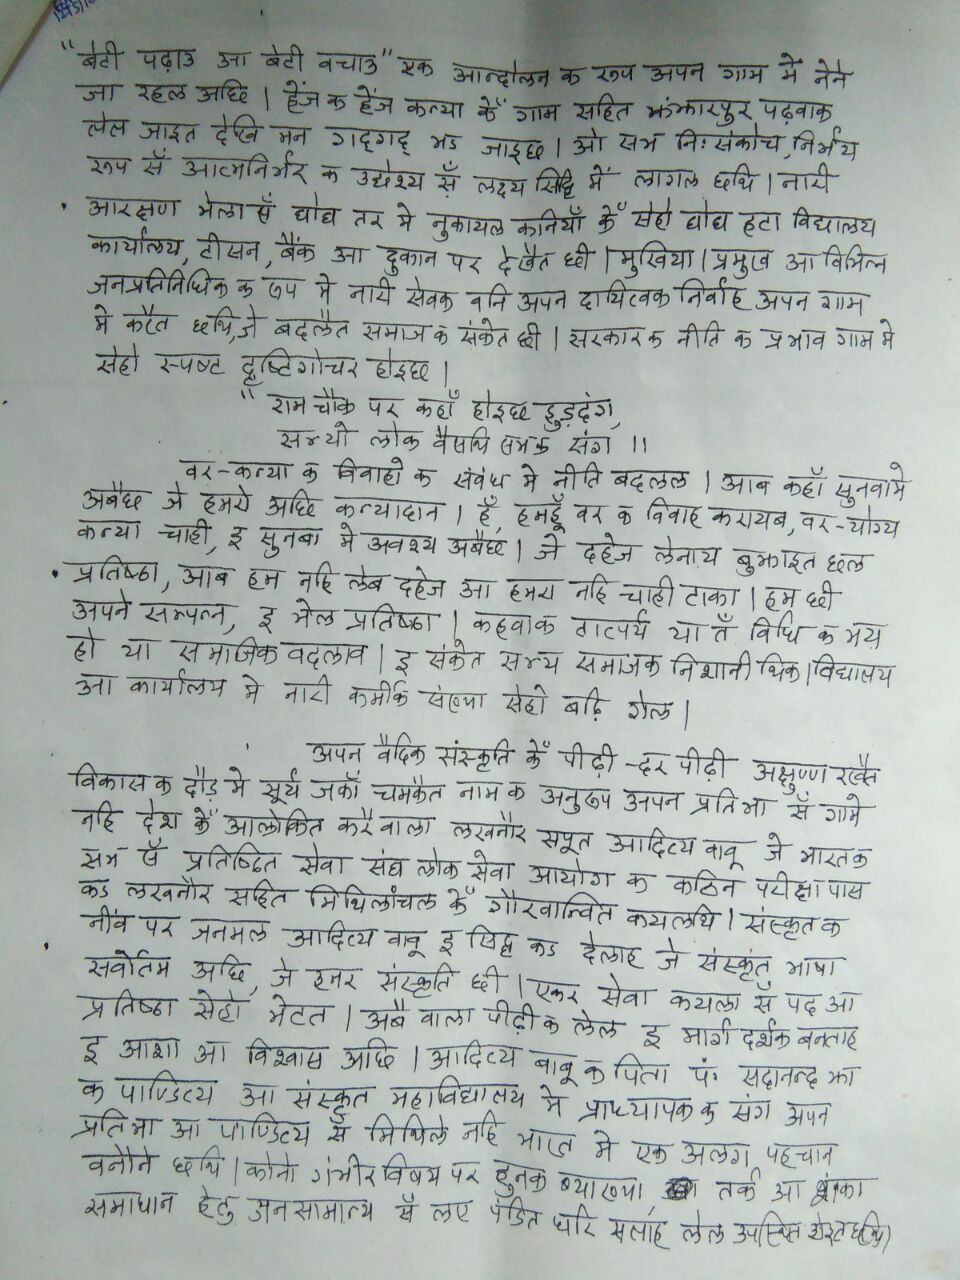 "बेटी पढ़ाउ आ बेटी बचाउ" एक आन्दोलन क रूप अपन गाम में लेने
जा रहल अछि । हेंज क हेंज कन्या कें गाम सहित झंझारपुर पढ़वाक
लेल जाइत देखि मन गद्गद् भऽ जाइछ । ओ सभ निःसंकोच, निर्भय
रूप सँ आत्मनिर्भर क उद्देश्य सँ लक्ष्य सिद्धि में लागल छथि । नारी
आरक्षण भेला सँ घोघ तर मे नुकायल कनियाँ कें सेहो घोघ हटा विद्यालय
कार्यालय, टीसन, बैंक आ दुकान पर देखैत छी । मुखिया । प्रमुख आ विभिन्न
जनप्रतिनिधिक क रूप मे नारी सेवक बनि अपन दायित्वक निर्वाह अपन गाम
मे करैत छथि, जे बदलैत समाज क संकेत छी । सरकार क नीति क प्रभाव गाम मे
सेहो स्पष्ट दृष्टिगोचर होइछ ।
"राम चौक पर कहाँ होइछ हुड़दंग,
सभ्यो लोक वैसथि सभक संग ।।
वर-कन्या क विवाहो क संबंध मे नीति बदलल । आब कहाँ सुनवामे
अबैछ जे हमरो अछि कन्यादान । हँ, हमहूँ वर क विवाह करायब, वर-योग्य
कन्या चाही, इ सुनबा मे अवश्य अबैछ । जे दहेज लेनाय बुझाइत छल
प्रतिष्ठा, आब हम नहि लेब दहेज आ हमरा नहि चाही टाका । हम छी
अपने सम्पन्न, इ भेल प्रतिष्ठा । कहवाक तात्पर्य या तँ विधि क भय
हो या समाजिक बदलाव । इ संकेत सभ्य समाजक निशानी थिक । विद्यालय
आ कार्यालय मे नारी कर्मीक संख्या सेहो बढ़ि गेल ।
अपन वैदिक संस्कृति कें पीढ़ी-दर पीढ़ी अक्षुण्ण रखैत
विकास क दौड़ मे सूर्य जकाँ चमकैत नाम क अनुरूप अपन प्रतिभा सँ गामे
नहि देश कें आलोकित करै वाला लखनौर सपूत आदित्य बाबू जे भारतक
सभ सँ प्रतिष्ठित सेवा संघ लोक सेवा आयोग क कठिन परीक्षा पास
कऽ लखनौर सहित मिथिलांचल कें गौरवान्वित कयलथि । संस्कृत क
नींव पर जनमल आदित्य बाबू इ सिद्ध कऽ देलाह जे संस्कृत भाषा
सर्वोतम अछि, जे हमर संस्कृति छी । एकर सेवा कयला सँ पद आ
प्रतिष्ठा सेहो भेटत । अबै वाला पीढ़ी क लेल इ मार्ग दर्शक बनताह
इ आशा आ विश्वास अछि । आदित्य बाबू क पिता पं॰ सदानन्द झा
क पाण्डित्य आ संस्कृत महाविद्यालय मे प्राध्यापक क संग अपन
प्रतिभा आ पाण्डित्य सँ मिथिले नहि भारत मे एक अलग पहचान
बनौने छथि । कोनो गंभीर विषय पर हुनक व्याख्या तर्क आ शंका
समाधान हेतु जनसामान्य सँ लए पंडित धरि सलाह लेल उपस्थित होइत छथि ।